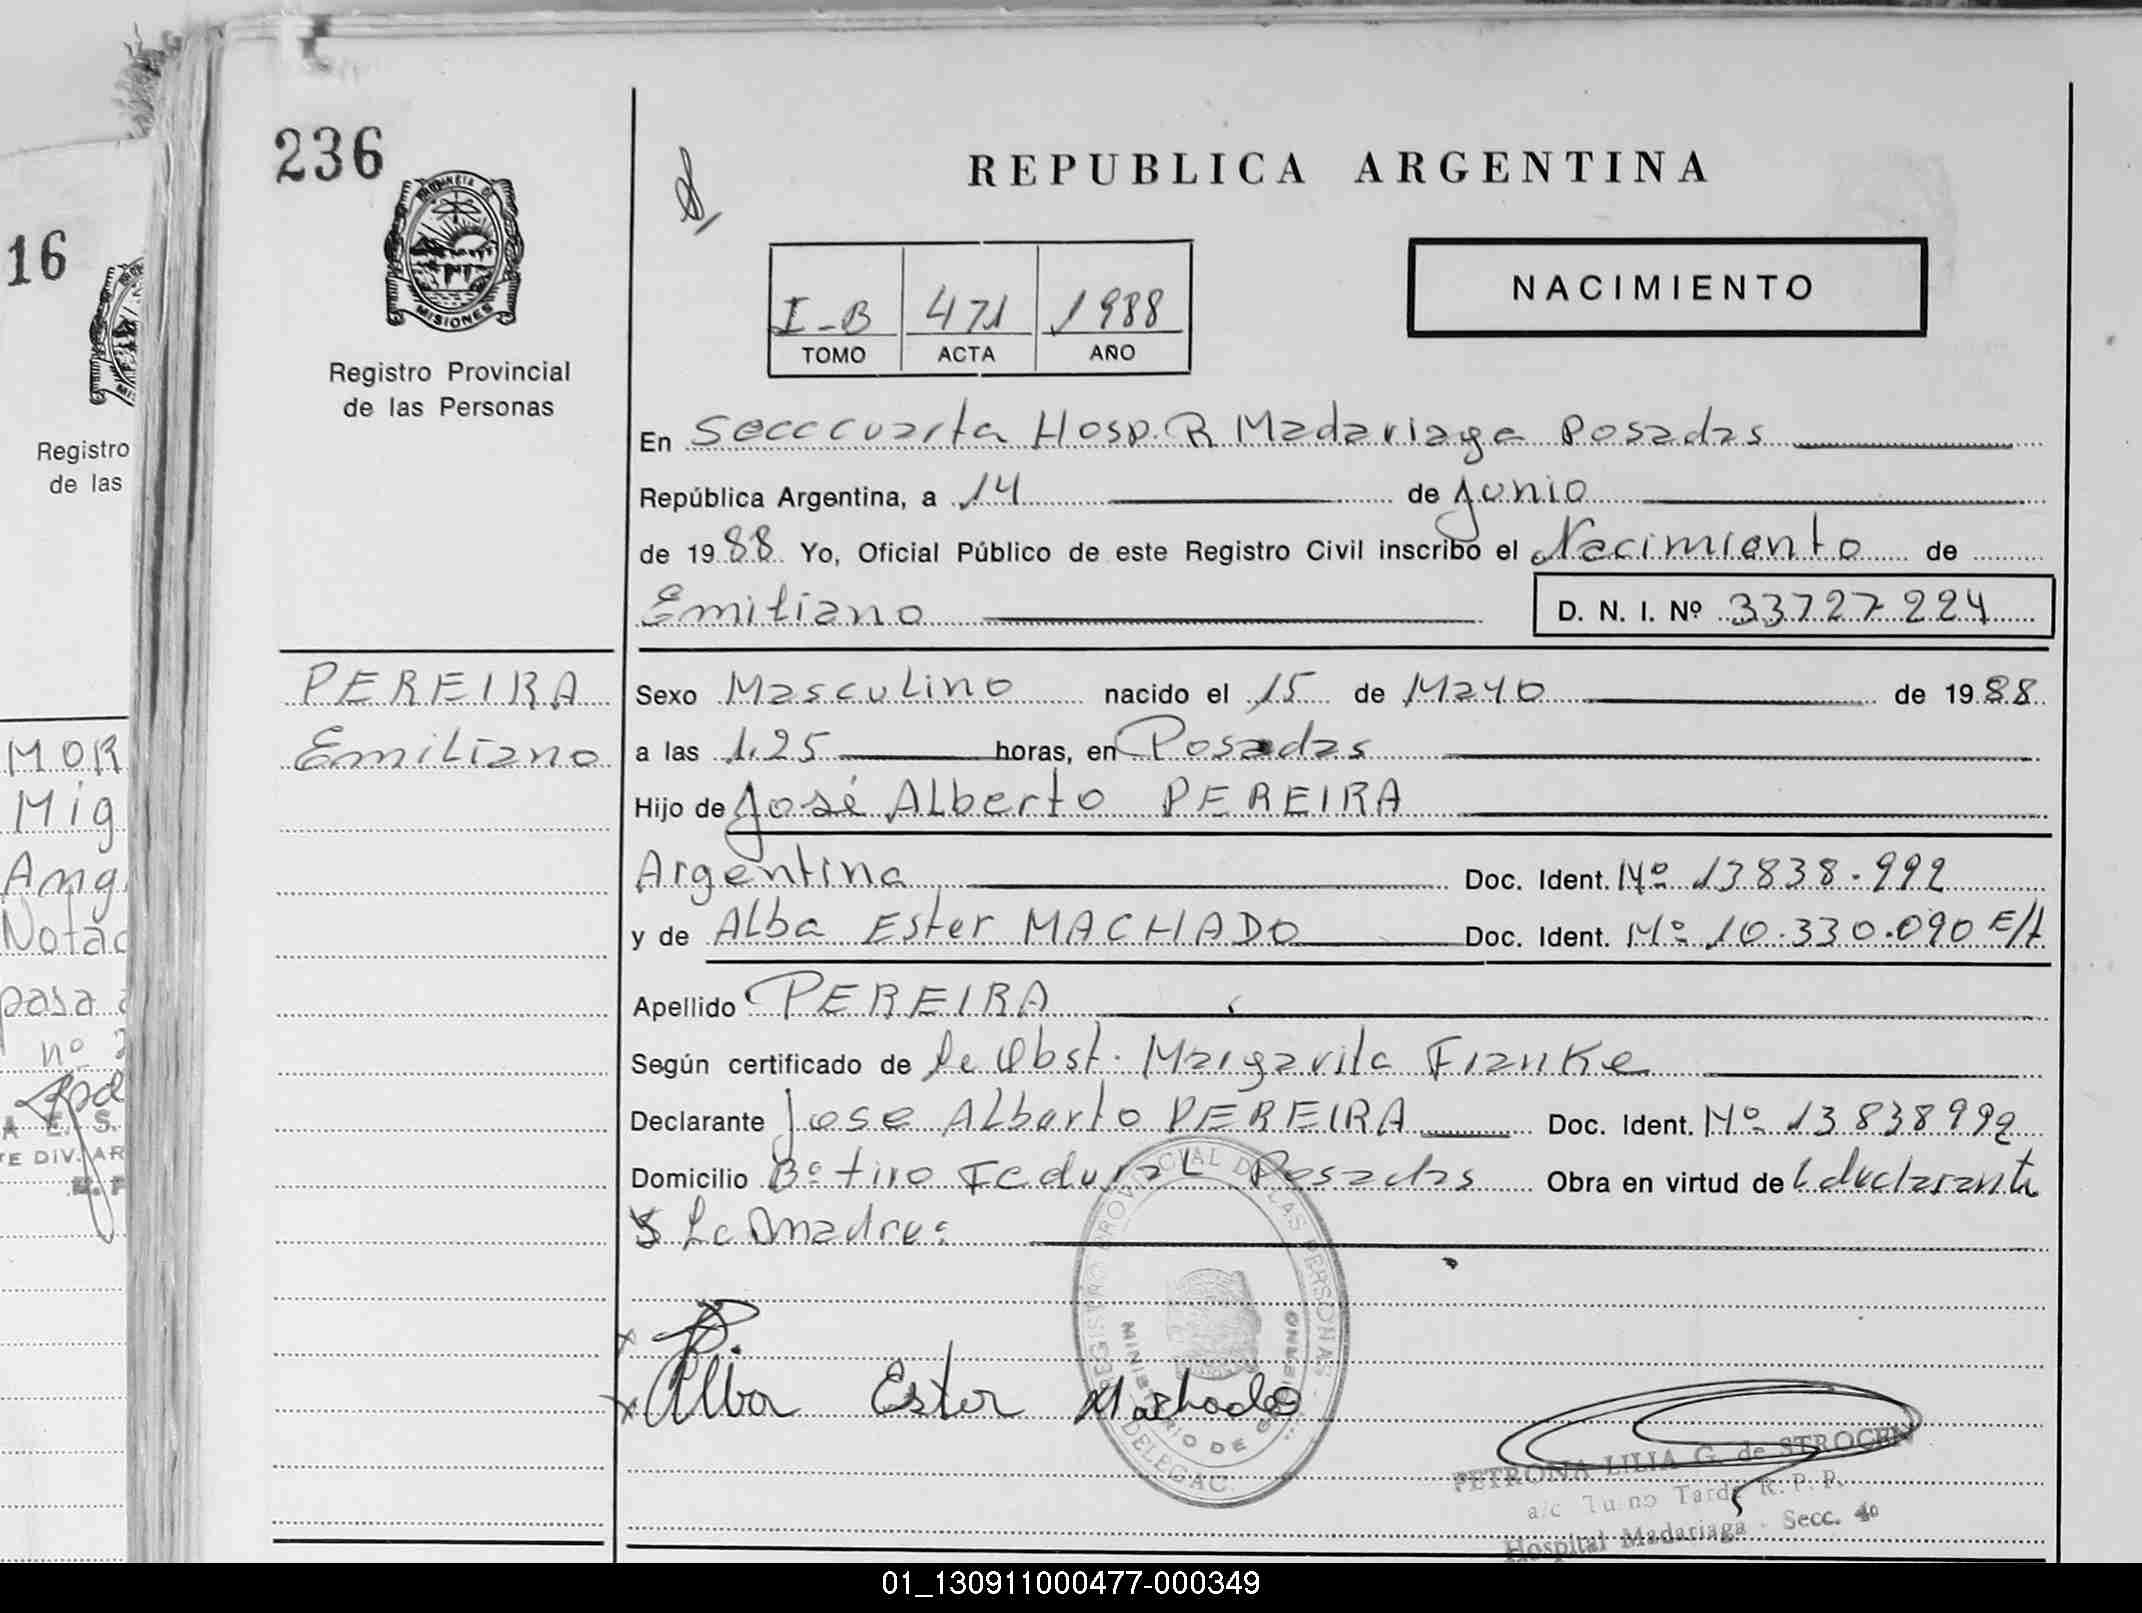 236
PROVINCIA DE
MISIONES
Registro Provincial
de las Personas
REPUBLICA ARGENTINA
NACIMIENTO
I-B 471 1988
TOMO ACTA AÑO
En Secc cuarta Hosp. R Madariaga Posadas
República Argentina, a 14 de Junio
de 1988 Yo, Oficial Público de este Registro Civil inscribo el Nacimiento de
Emiliano D. N. I. Nº 33727224
PEREIRA
Emiliano
Sexo Masculino nacido el 15 de Mayo de 1988
a las 1.25 horas, en Posadas
Hijo de José Alberto PEREIRA
Argentina Doc. Ident. Nº 13838.992
y de Alba Ester MACHADO Doc. Ident. Nº 10.330.090 E/t
Apellido PEREIRA
Según certificado de la Obst. Margarita Franke
Declarante Jose Alberto PEREIRA Doc. Ident. Nº 13838992
Domicilio Bº tiro Federal Posadas Obra en virtud de declarante
y La madre:
REGISTRO PROVINCIAL DE LAS PERSONAS
MINISTERIO DE GOBIERNO
DELEGAC.
Alba Ester Machado
PETRONA LILIA G. de STROGEN
a/c Turno Tarde R. P. P.
Hospital Madariaga - Secc. 4º
16
Registro
de las
MOR
Mig
Ang
Nota
pasa
nº
01_130911000477-000349